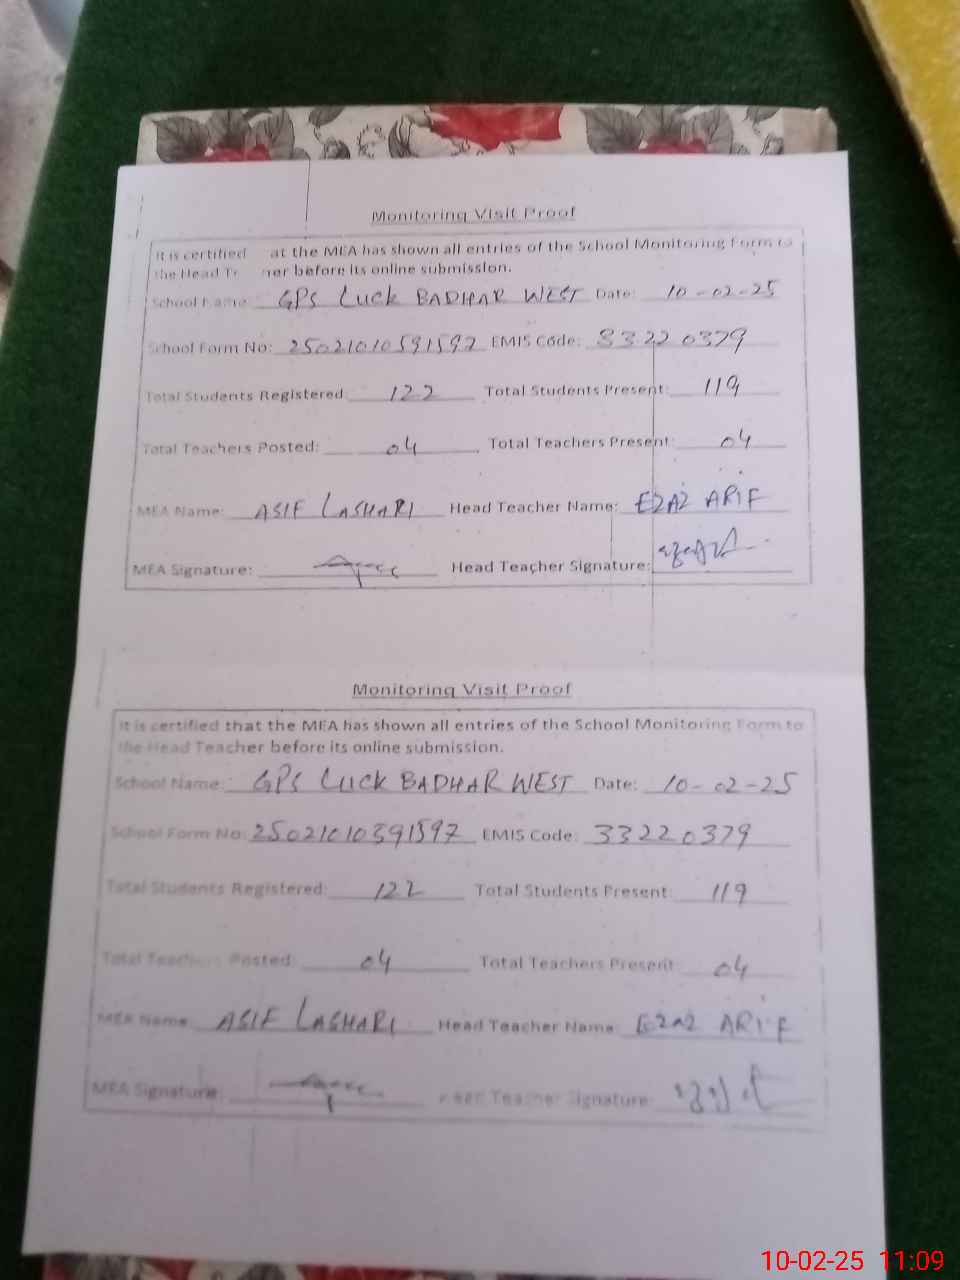 Monitoring Visit Proof
It is certified at the MEA has shown all entries of the School Monitoring Form to
the Head Te her before its online submission.
School Name: GPS LUCK BADHAR WEST Date: 10-02-25
School Form No: 25021010591597 EMIS Code: 33220379
Total Students Registered: 122 Total Students Present: 119
Total Teachers Posted: 04 Total Teachers Present: 04
MEA Name: ASIF LASHARI Head Teacher Name: EZAZ ARIF
MEA Signature: Head Teacher Signature:
Monitoring Visit Proof
It is certified that the MEA has shown all entries of the School Monitoring Form to
the Head Teacher before its online submission.
School Name: GPS LUCK BADHAR WEST Date: 10-02-25
School Form No: 25021010391597 EMIS Code: 33220379
Total Students Registered: 122 Total Students Present: 119
Total Teachers Posted: 04 Total Teachers Present: 04
MEA Name: ASIF LASHARI Head Teacher Name: EZAZ ARIF
MEA Signature: Head Teacher Signature:
10-02-25 11:09